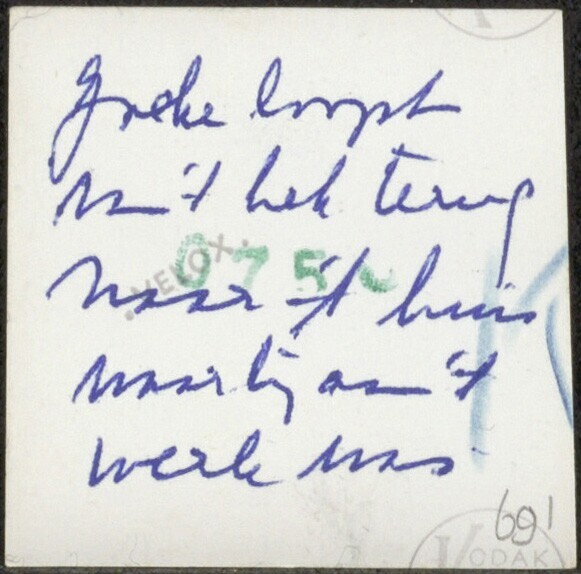 loopt
van 't hek terug
naar 't huis
waar hij aan 't
werk was
.VELOX.
075
69'
KODAK